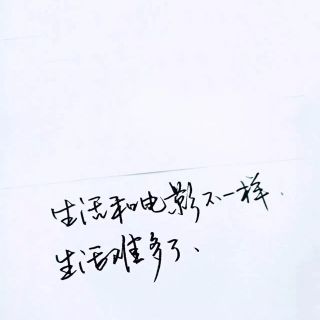 生活和电影不一样.
生活难多了、